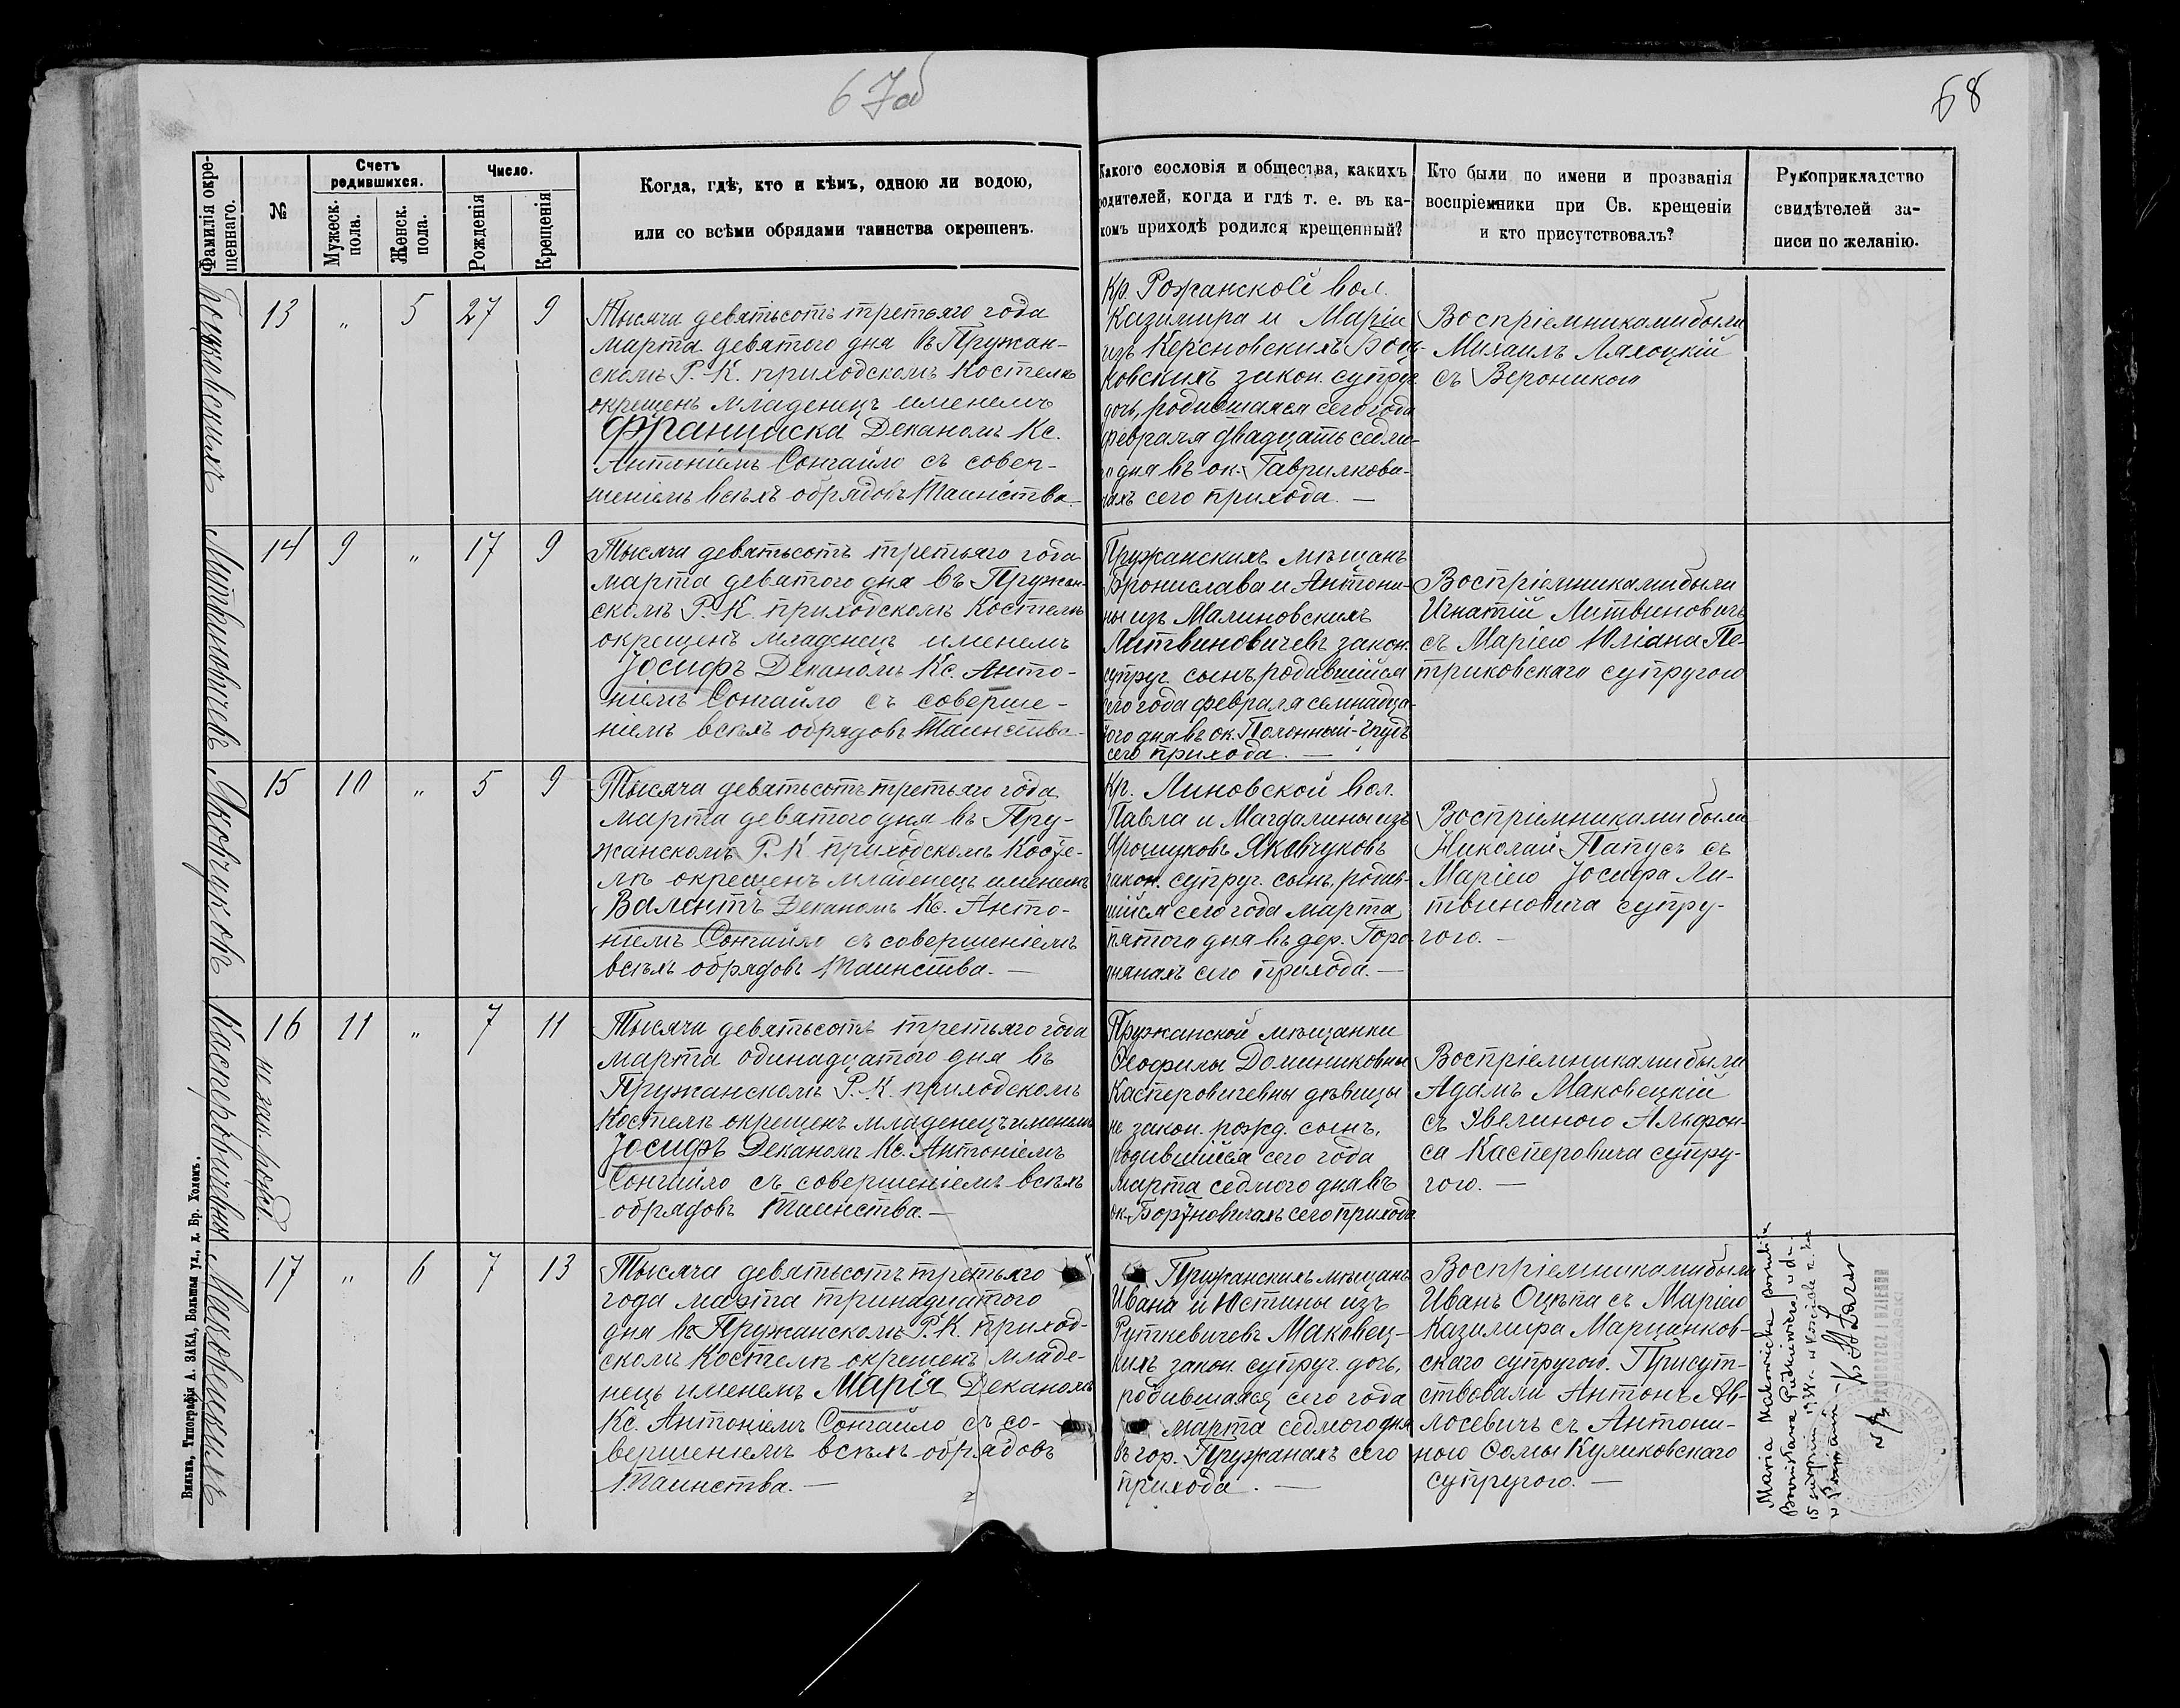 67об
68
Фамилія окре-
щеннаго.
№
Счетъ
родившихся.
Мужеск.
пола.
Женск.
пола.
Число.
Рожденія
Крещенія
Когда, гдѣ, кто и кѣмъ, одною ли водою,
или со всѣми обрядами таинства окрещенъ.
Какого сословія и общества, какихъ
родителей, когда и гдѣ т. е. въ ка-
комъ приходѣ родился крещенный?
Кто были по имени и прозванія
воспріемники при Св. крещеніи
и кто присутствовалъ?
Рукоприкладство
свидѣтелей за-
писи по желанію.
13 " 5 27 9
Тысяча девятьсотъ третьяго года
марта девятого дня въ Пружан-
скомъ Р.-К. приходскомъ Костелѣ
окрещенъ младенецъ именемъ
Франциска Деканомъ Кс.
Антоніемъ Сонгайло съ совер-
шеніемъ всѣхъ обрядовъ Таинства.
Кр. Рожанской вол.
Казимира и Маріи
изъ Керсновскихъ Боц-
ковскихъ закон. супруг.
дочь, родившаяся сего года
февраля двадцать седмо-
го дня въ ок. Гаврилкова-
чахъ сего прихода. —
Воспріемниками были
Михаилъ Ляхоцкій
съ Вероникою
Литвиновичевъ
14 9 " 17 9
Тысяча девятьсотъ третьяго года
марта девятого дня въ Пружан-
скомъ Р.-К. приходскомъ Костелѣ
окрещенъ младенецъ именемъ
Іосифъ Деканомъ Кс. Анто-
ніемъ Сонгайло съ соверше-
ніемъ всѣхъ обрядовъ Таинства.
Пружанскихъ мѣщанъ
Бронислава и Антони-
ны изъ Малиновскихъ
Литвиновичевъ закон.
супруг. сынъ, родившійся
сего года февраля семнадца-
того дня въ ок. Полонный-Грудъ
сего прихода. —
Воспріемниками были
Игнатій Литвиновичъ
съ Маріею Юліана Пе-
триковскаго супругою
Яковчуковъ
15 10 " 5 9
Тысяча девятьсотъ третьяго года
марта девятого дня въ Пру-
жанскомъ Р.-К приходскомъ Косте-
лѣ окрещенъ младенецъ именемъ
Валентъ Деканомъ Кс. Анто-
ніемъ Сонгайло съ совершеніемъ
всѣхъ обрядовъ Таинства. —
Кр. Линовской вол.
Павла и Магдалины изъ
Ярошуковъ Яковчуковъ
закон. супруг. сынъ, родив-
шійся сего года марта
пятого дня въ дер. Горо-
днянахъ сего прихода. —
Воспріемниками были
Николай Папусъ съ
Маріею Іосифа Ли-
твиновича супру-
гою. —
Касперовичевны
16 11 " 7 11
не зак. рожд.
Тысяча девятьсотъ третьяго года
марта одинадцатого дня въ
Пружанскомъ Р.-К. приходскомъ
Костелѣ окрещенъ младенецъ именемъ
Іосифъ Деканомъ Кс. Антоніемъ
Сонгайло съ совершеніемъ всѣхъ
обрядовъ Таинства. —
Пружанской мѣщанки
Ѳеофилы Доминиковны
Касперовичевны дѣвицы
не закон. рожд. сынъ,
родившійся сего года
марта седмого дня въ
сего прихода
Воспріемниками были
Адамъ Маковецкій
съ Эвелиною Альфон-
са Касперовича супру-
гою. —
Маковецкихъ
17 " 6 7 13
Тысяча девятьсотъ третьяго
года марта тринадцатого
дня въ Пружанскомъ Р.К. приход-
скомъ Костелѣ окрещенъ младе-
нецъ именемъ Марія Деканомъ
Кс. Антоніемъ Сонгайло съ со-
вершеніемъ всѣхъ обрядовъ
Таинства. —
Пружанскихъ мѣщанъ
Ивана и Юстины изъ
Руткевичевъ Маковец-
кихъ закон. супруг. дочь,
родившаяся сего года
марта седмого дня
въ гор. Пружанахъ сего
прихода. —
Воспріемниками были
Иванъ Оцѣпа съ Маріею
Казимира Марцинков-
скаго супругою. Присут-
ствовали Антонъ Ав-
лосевичъ съ Антони-
ною Ѳомы Куликовскаго
супругою. —
Maria Makowiecka
Bronisława Rutkiewicza
15 sierpnia
Вильна, Типографія А. ЗАКА, Большая ул., д. Бр. Холемъ.